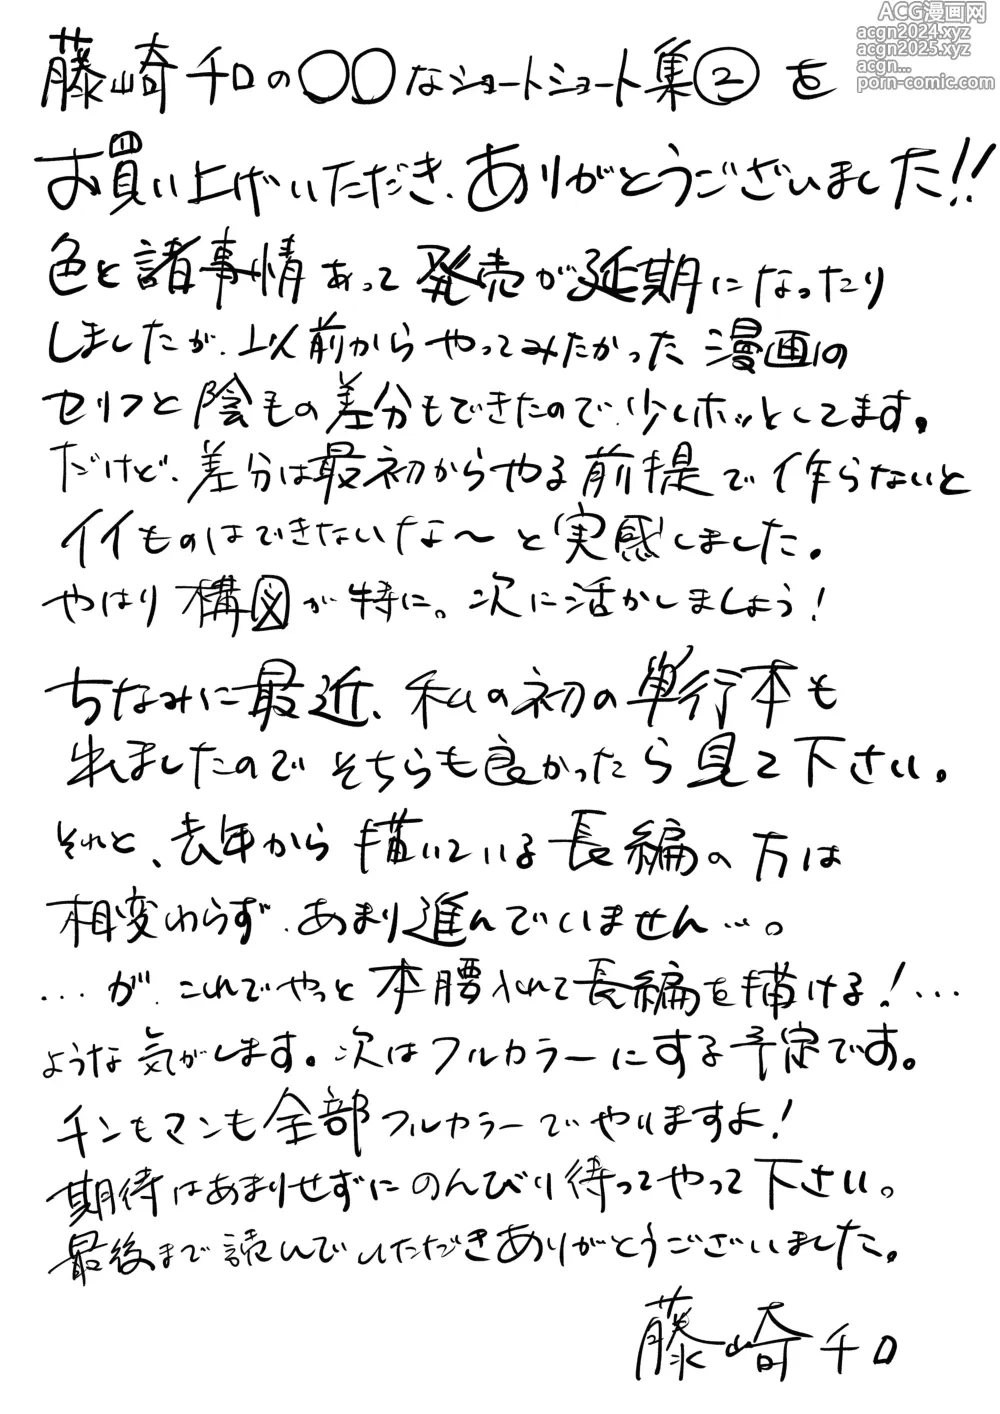 ACG漫画网
acgn2024.xyz
acgn2025.xyz
acgn...
porn-comic.com
藤崎チロの○○なショートショート集②を
お買い上げいただき、ありがとうございました!!
色と諸事情あって発売が延期になったり
しましたが、以前からやってみたかった漫画の
セリフと陰毛の差分もできたので、少しホッとしてます。
だけど、差分は最初からやる前提で作らないと
イイものはできないな〜と実感しました。
やはり構図が特に。次に活かしましょう!
ちなみに最近、私の初の単行本も
出ましたのでそちらも良かったら見て下さい。
それと、去年から描いている長編の方は
相変わらず、あまり進んでいません…。
…が、これでやっと本腰入れて長編を描ける!…
ような気がします。次はフルカラーにする予定です。
チンもマンも全部フルカラーでやりますよ!
期待はあまりせずにのんびり待ってやって下さい。
最後まで読んでいただきありがとうございました。
藤崎チロ